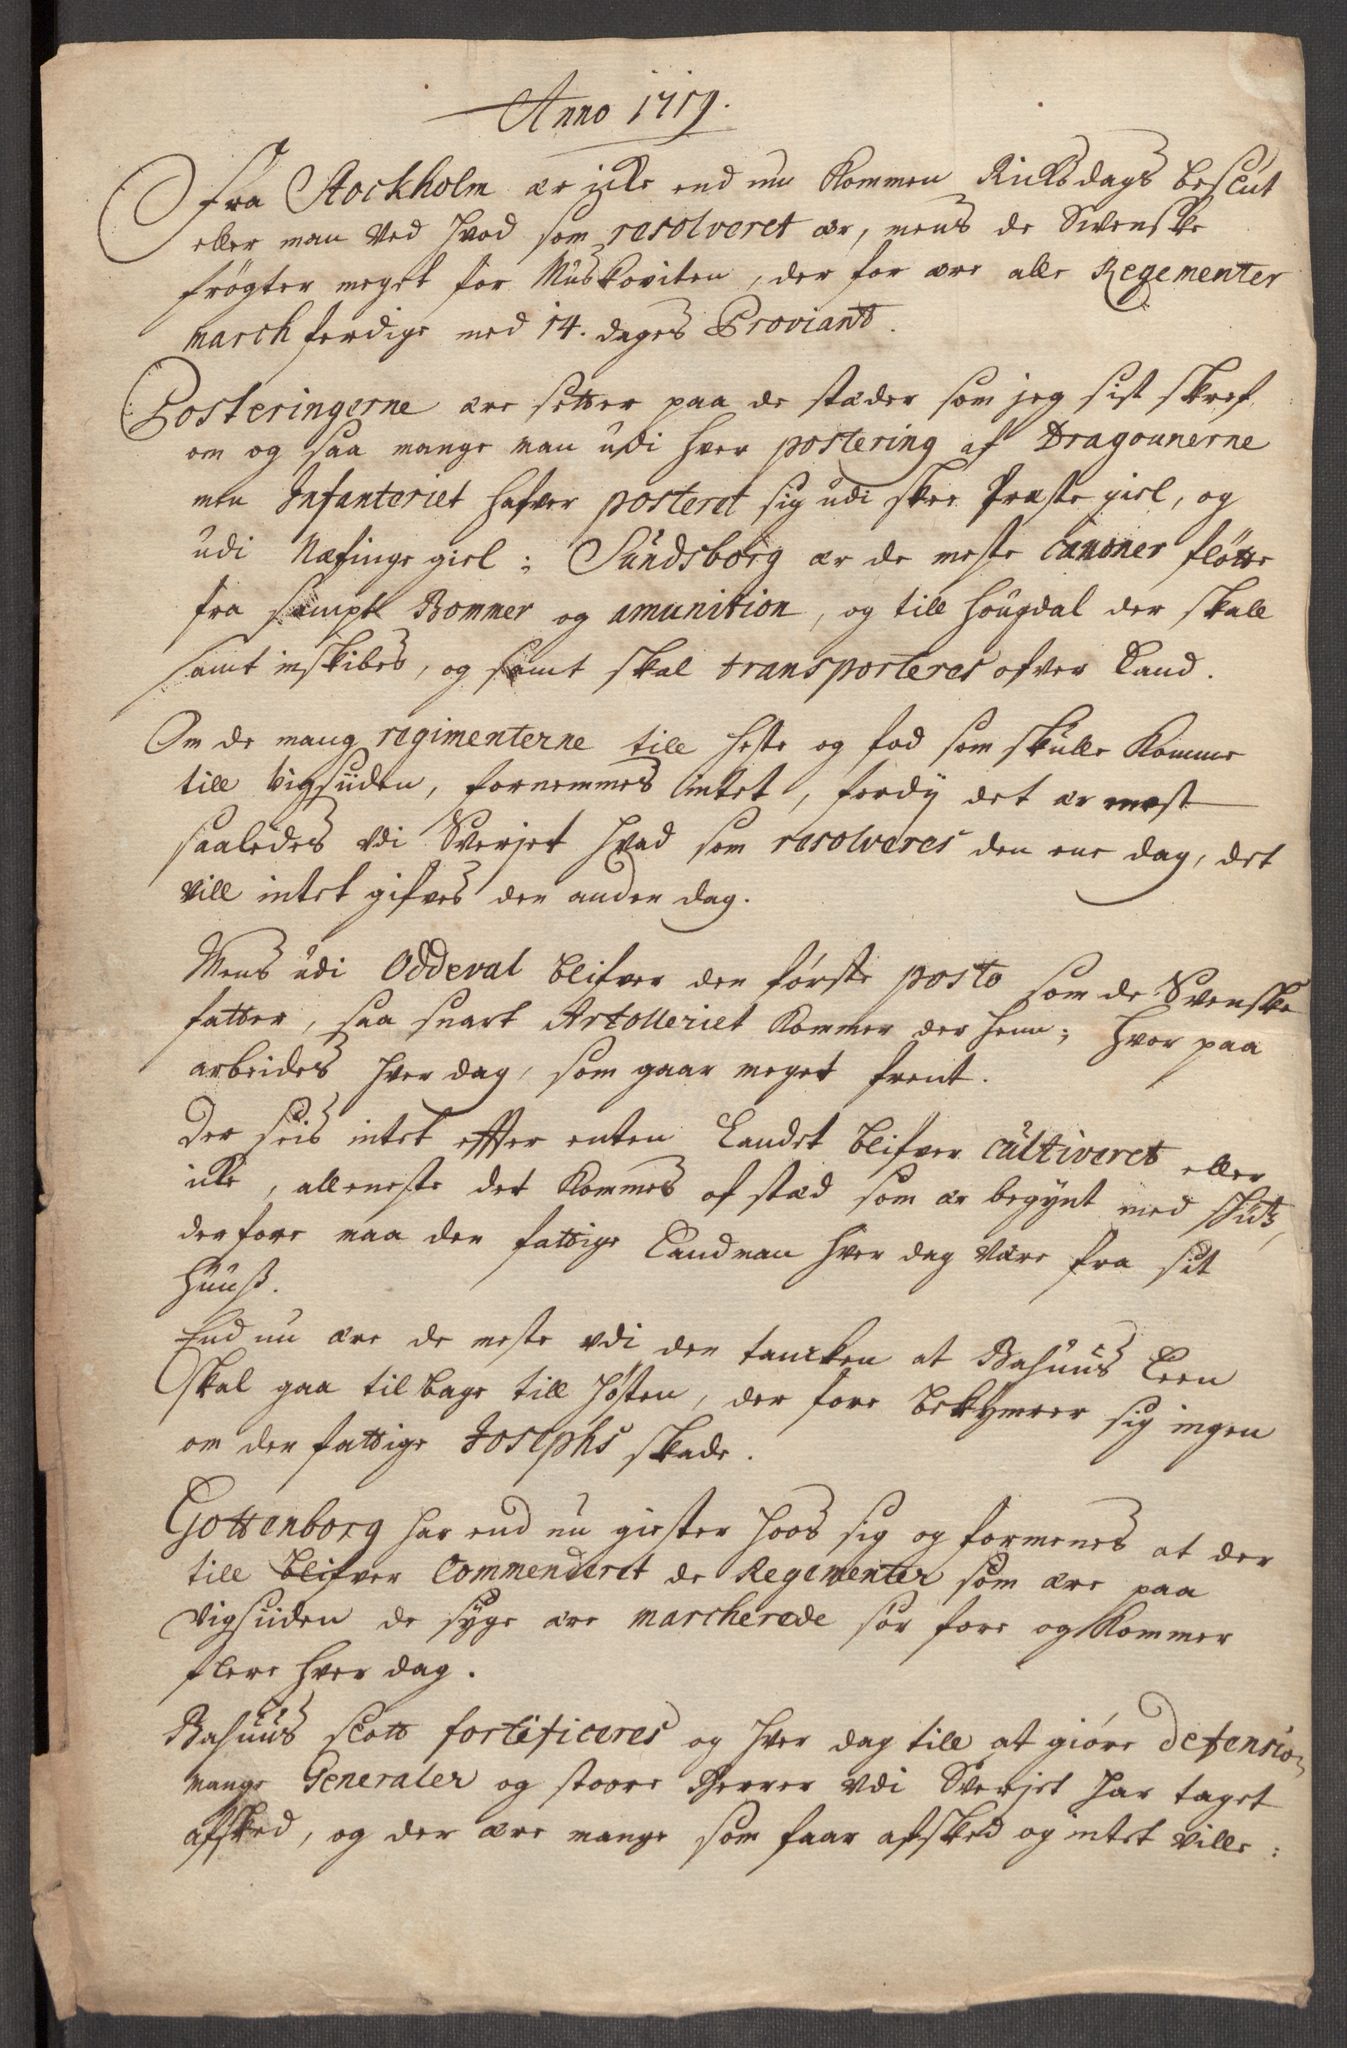 Anno 1719.
Fra Stockholm ær icke end nu kommen Ricksdags beslut
eller man ved hvad som resolveret ær, mens de Svenske
frögter meget for Muskoviten, der for ære alle Regementer
march ferdige med 14. dages Proviant.
Posteringerne ære setter paa de stæder som jeg sist skref
om og saa mange man udi hver postering af Dragounerne
men Infanteriet hafver posteret sig udi skee Præste giel, og
udi Næfinge giel; Sundsborg ær de meste Canoner flötte
fra sampt Bommer og amunition, og till Hougdal der skall
samt inskibes, og samt skal transporteres ofver Land.
Om de mang regimenterne till heste og fod som skulle komme
till vigsiiden, fornemmes intet, fordij det ær mest
saaledes vdi Sverjet hvad som resolveres den ene dag, det
vill intet gifves den anden dag.
Mens udi Oddeval blifver den förste posto som de Svenske
fatter, saa snart Artolleriet kommer der henn; hvor paa
arbeides hver dag, som gaar meget frent.
Der seis intet effter enten Landet blifver cultiveret eller
icke, alleneste det kommes af stæd som ær begynt med skiutz,
derfore maa den fattige Landman hver dag være fra sit
huuss.
End nu ære de meste vdi den tancken at Bahuus Leen
skal gaa tilbage till hösten, der fore bekymrer sig ingen
om den fattige Josephs skade.
Gottenborg har end nu giester hoos sig og formenes at der
till blifver Commenderet de Regementer som ære paa
vigsiiden de syge ære marcherede sör fore og kommer
flere hver dag.
Bahuus slott fortificeres og hver dag till at giöre defension
mange Generaler og stoore Herrer vdi Sverjet har taget
afsked, og der ære mange som faar afsked og intet ville: